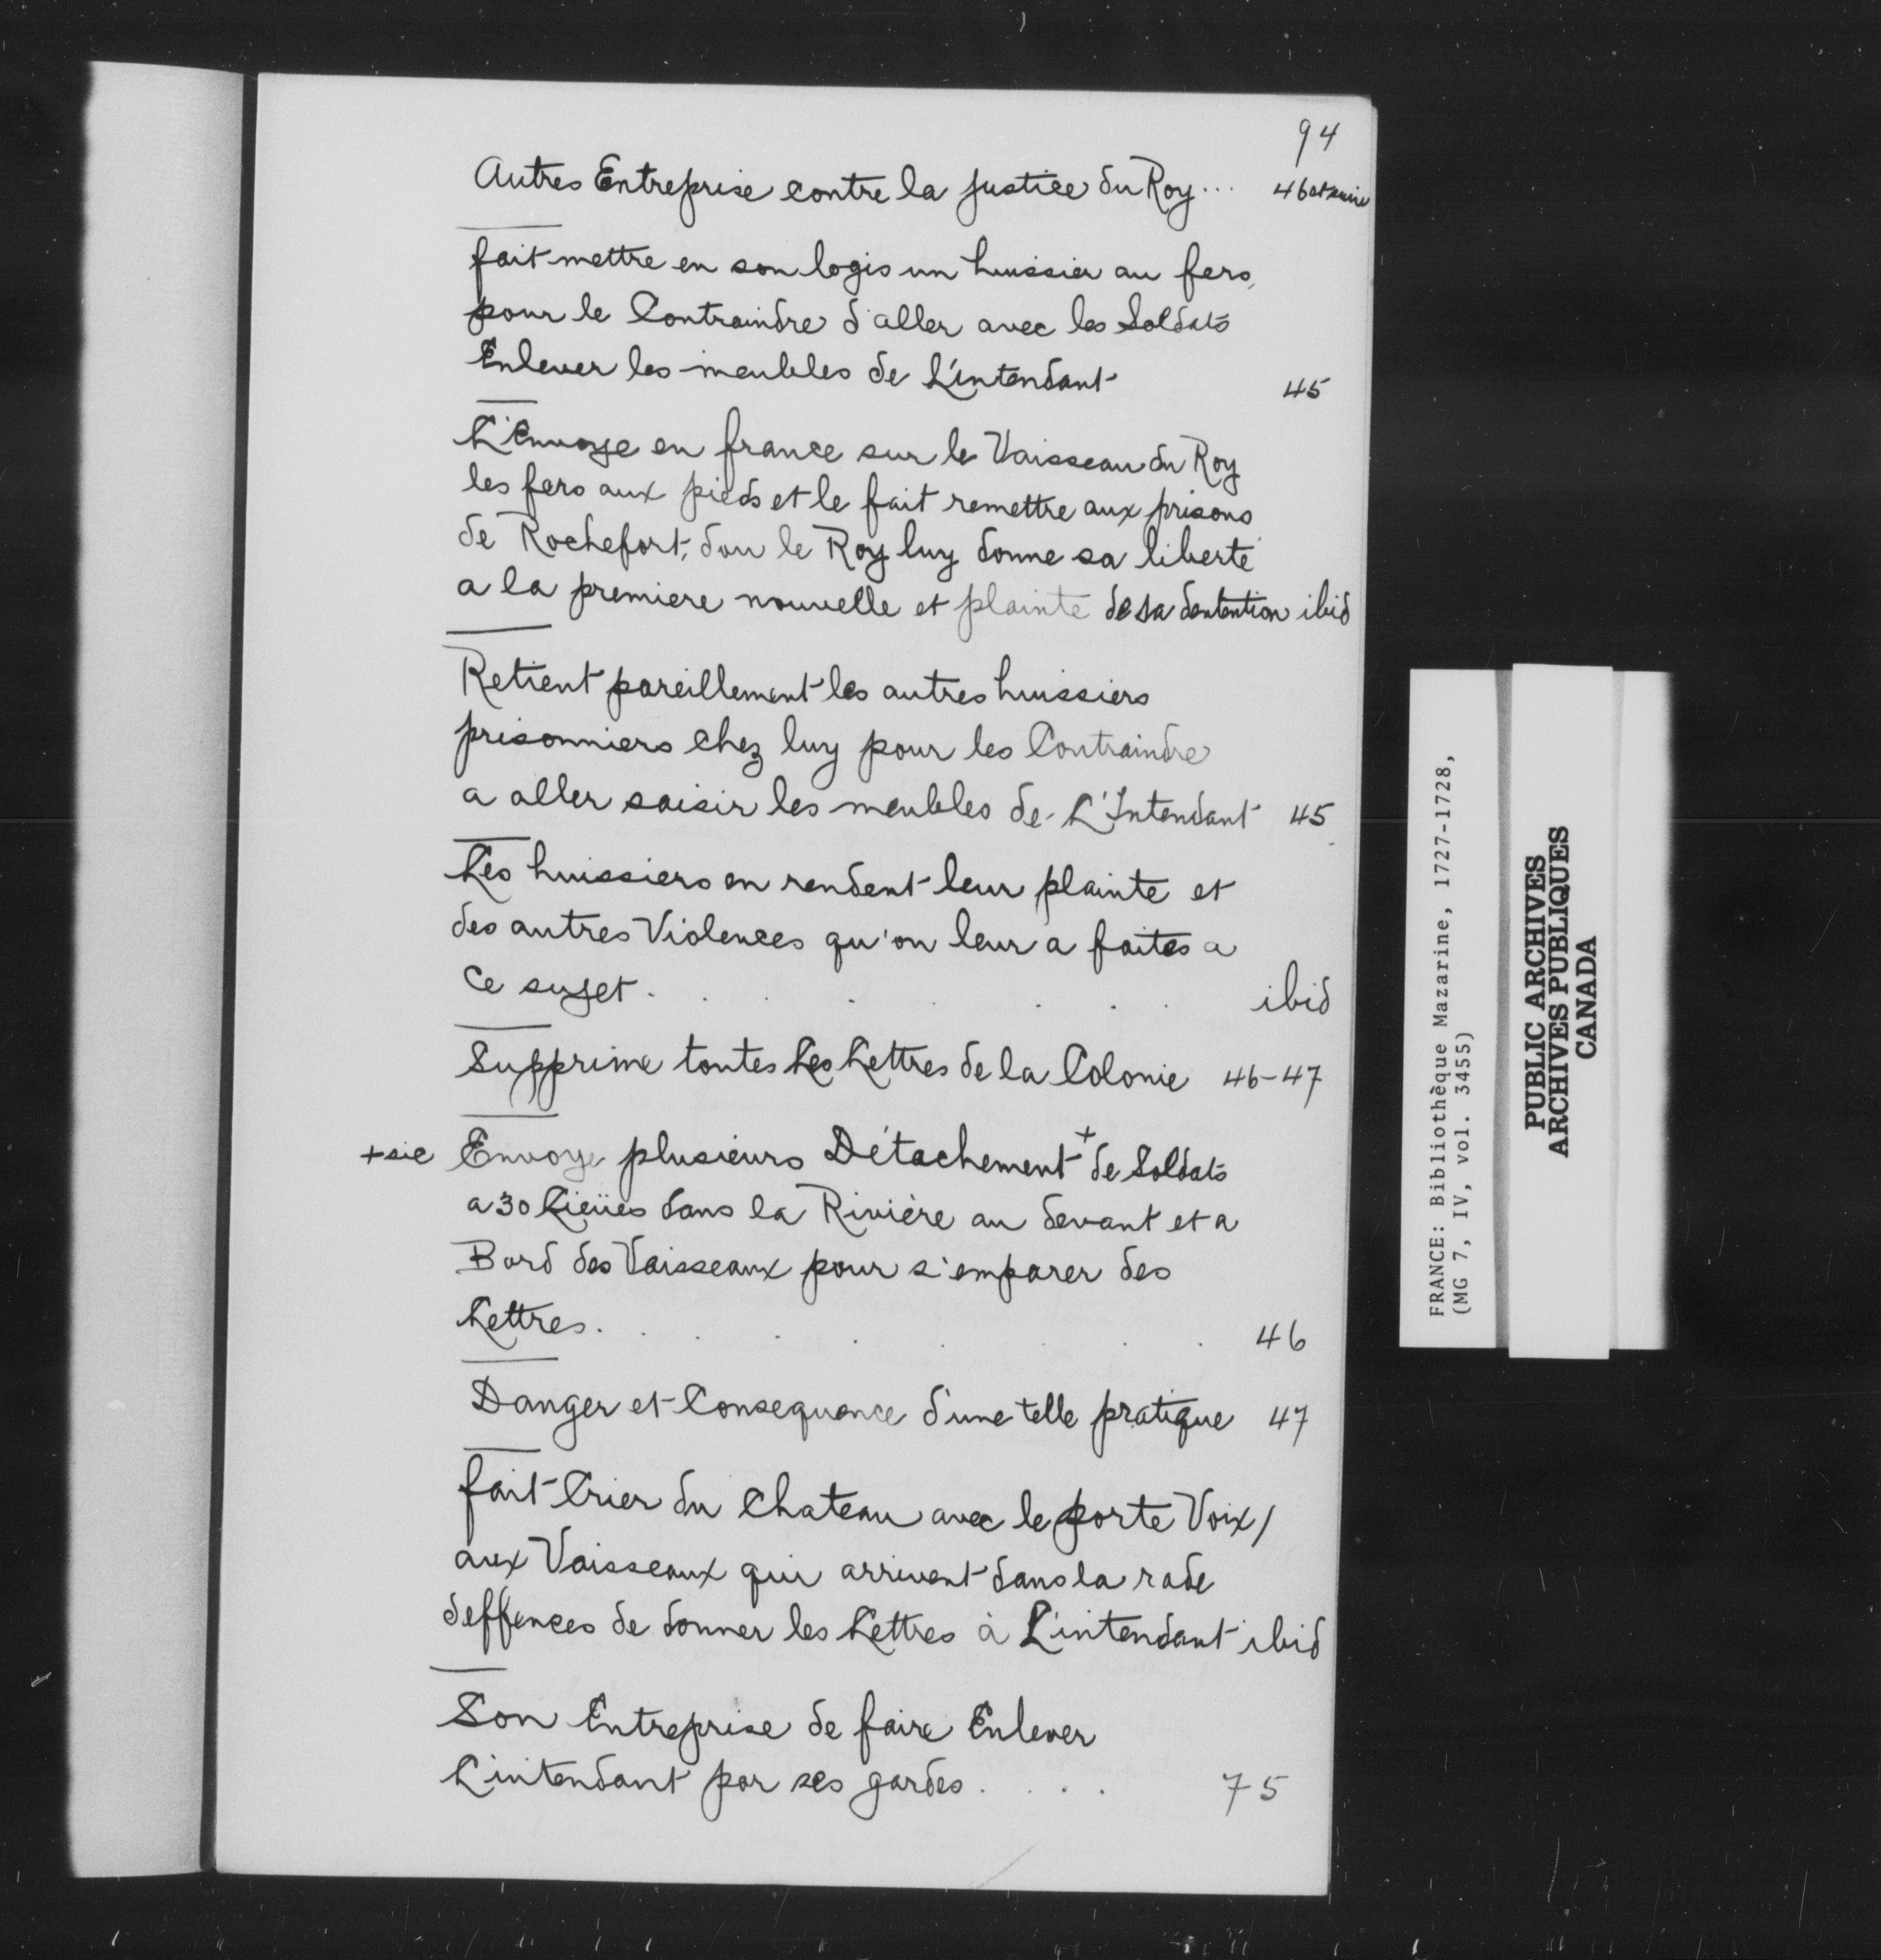 94
Autres Entreprise contre la justice du Roy ... 46 et suiv
fait mettre en son logis un huissier au fers,
pour le Contraindre d'aller avec les Soldats
Enlever les meubles de L'intendant 45
L'Envoye en france sur le Vaisseau du Roy
les fers aux pieds et le fait remettre aux prisons
de Rochefort, dou le Roy luy donne sa liberté
a la premiere nouvelle et plainte de sa dentention ibid
Retient pareillement les autres huissiers
prisonniers chez luy pour les Contraindre
a aller saisir les meubles de L'Intendant 45
Les huissiers en rendent leur plainte et
des autres Violences qu'on leur a faites a
Ce sujet . . . . . . ibid
Supprime toutes Les Lettres de la Colonie 46-47
+sic Envoye plusieurs Détachement + de Soldats
a 30 Lieües dans la Rivière au devant et a
Bord des Vaisseaux pour s'emparer des
Lettres. . . . . . . 46
Danger et Consequence d'une telle pratique 47
fait Crier du Chateau avec le porte Voix /
aux Vaisseaux qui arrivent dans la rade
deffences de donner les Lettres à L'intendant ibid
Son Entreprise de faire Enlever
L'intendant par ses gardes . . . . 75
FRANCE: Bibliothèque Mazarine, 1727-1728,
(MG 7, IV, vol. 3455)
PUBLIC ARCHIVES
ARCHIVES PUBLIQUES
CANADA